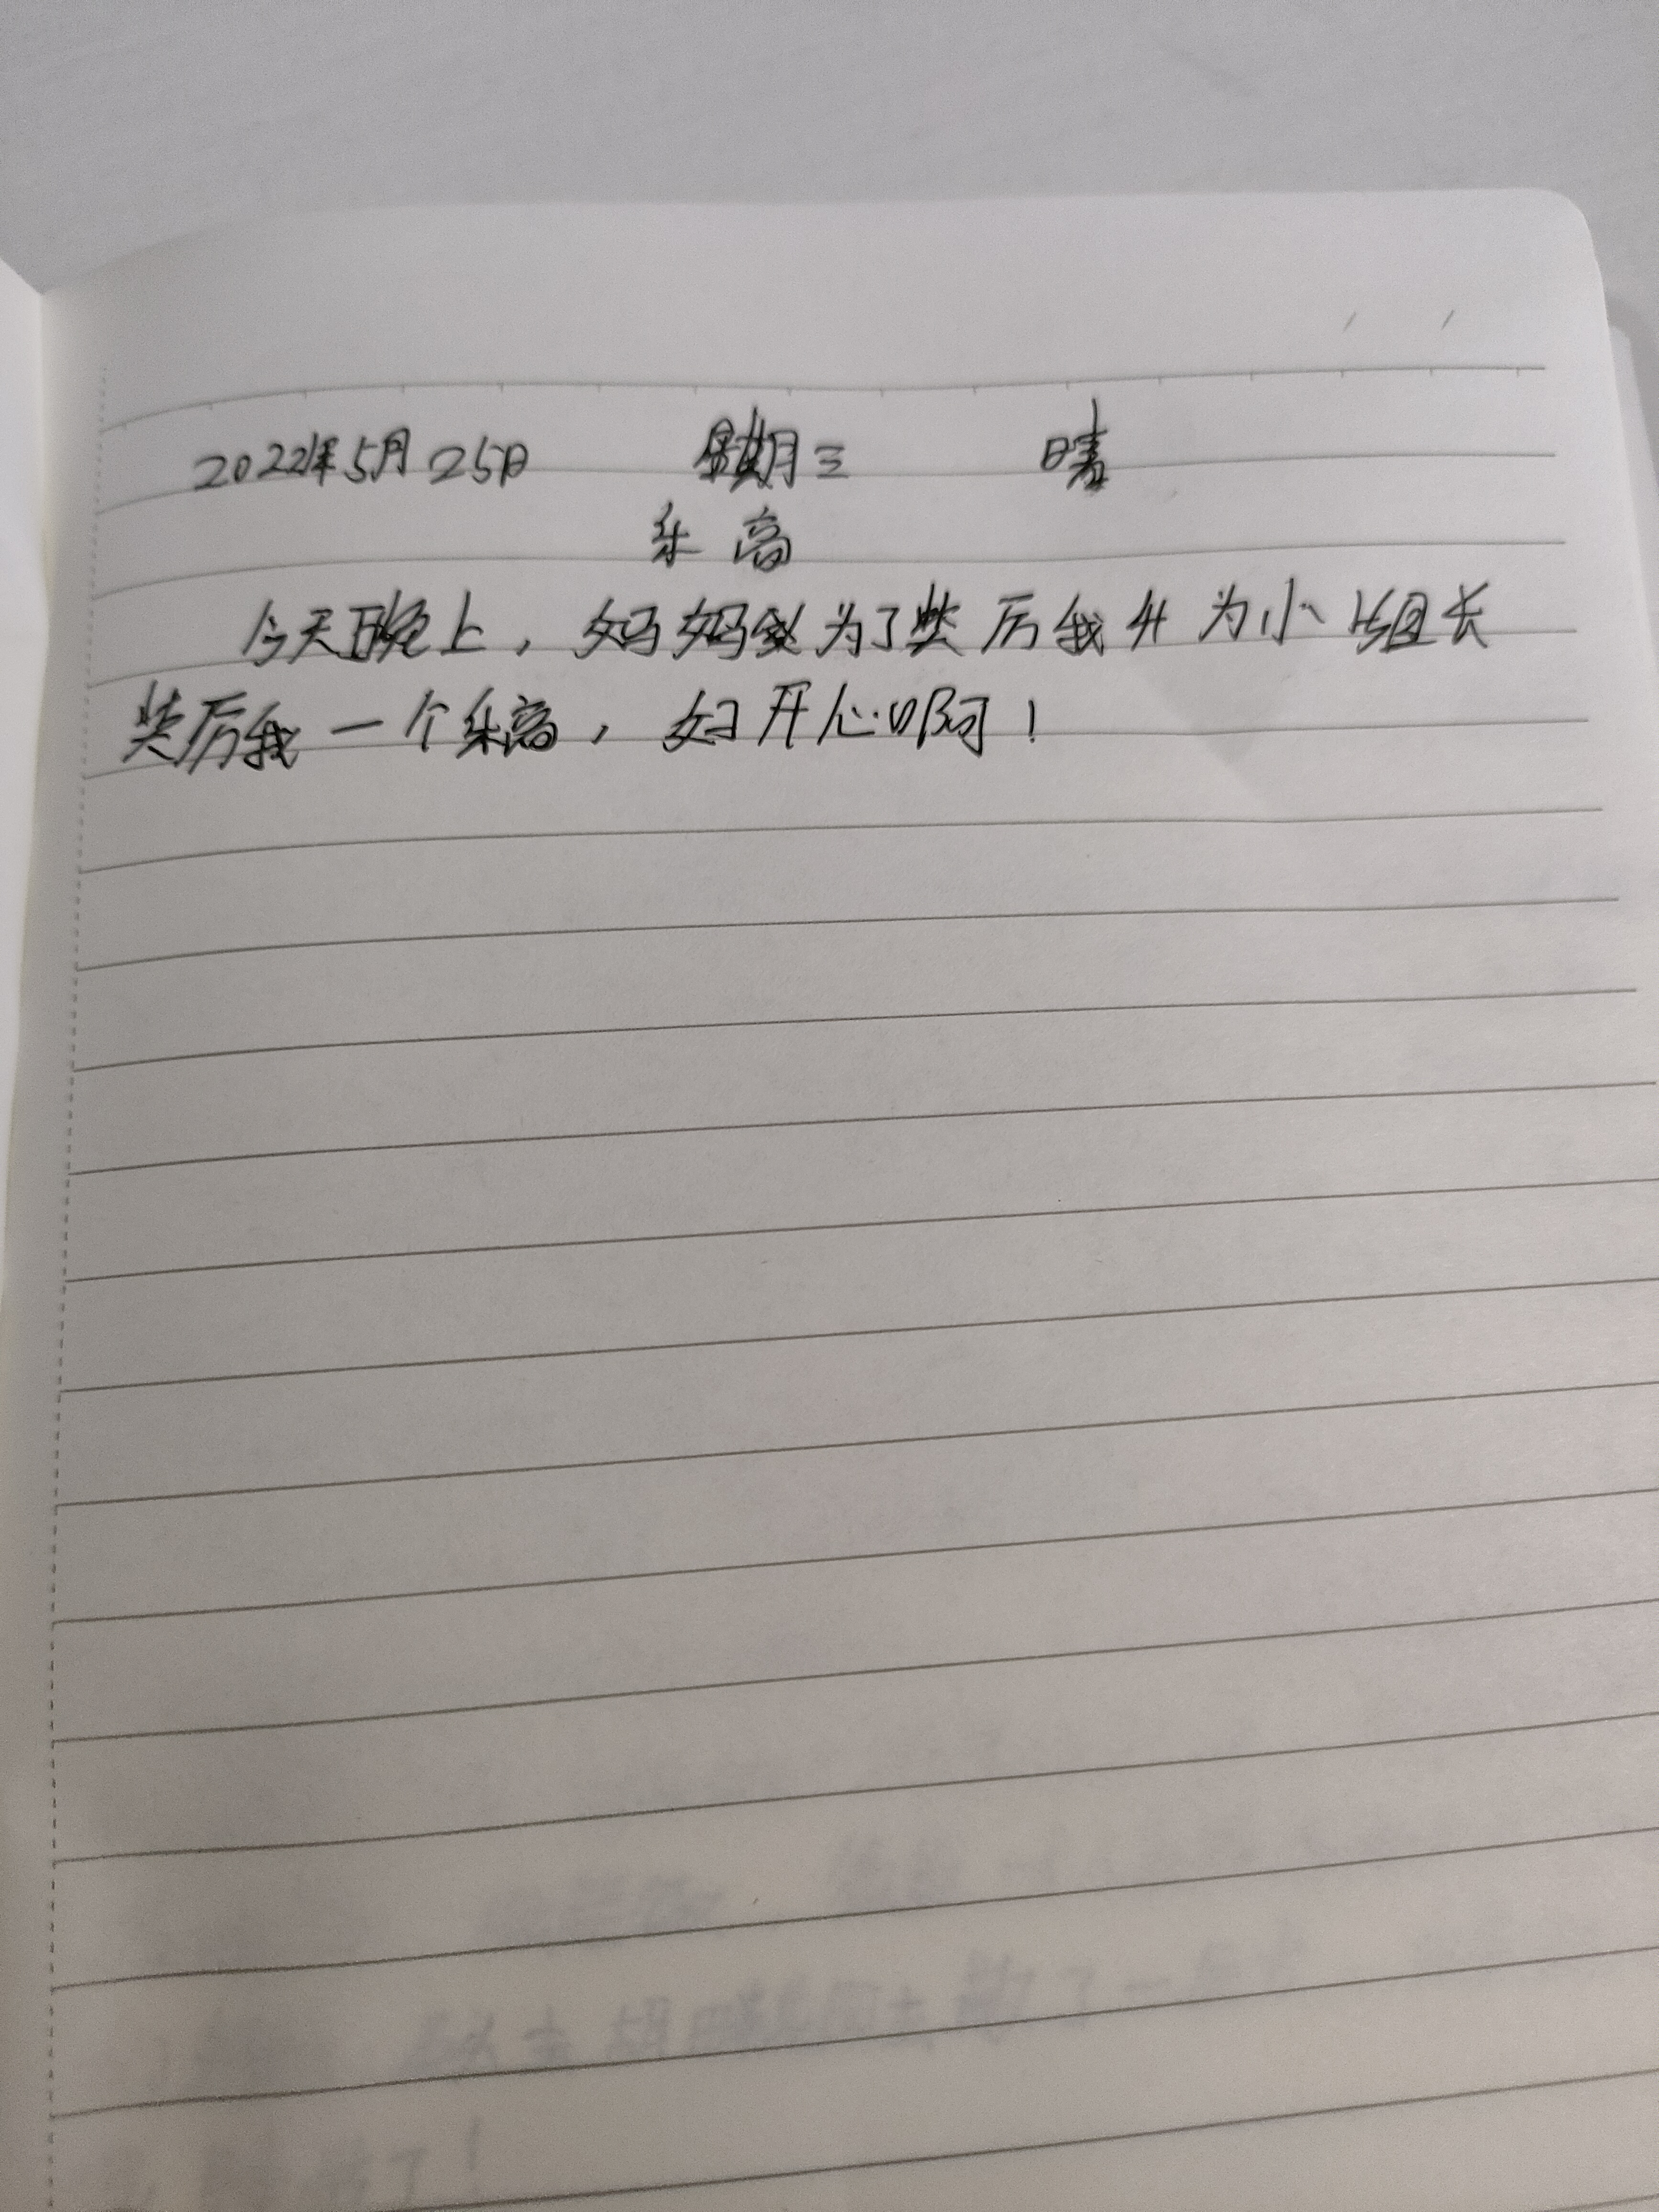 2022年5月25日 星期三 晴
乐高
今天晚上，妈妈为了奖厉我升为小组长
奖厉我一个乐高，好开心啊！